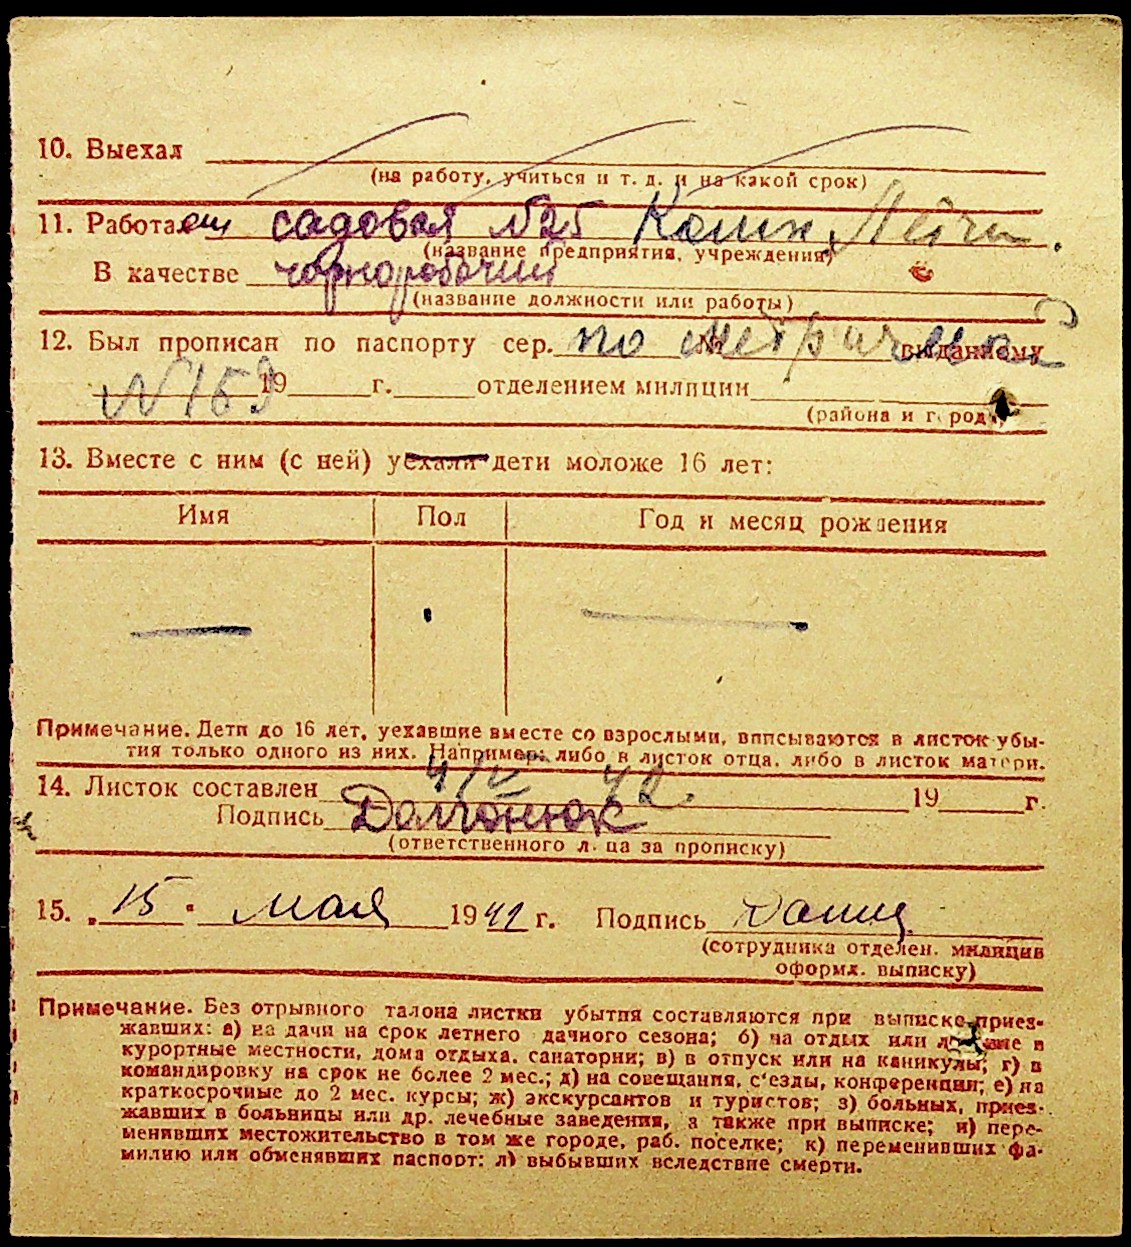 10. Выехал
(на работу, учиться и т. д. и на какой срок)
11. Работает садовая №25
(название предприятия, учреждения)
В качестве чорноробочии
(название должности или работы)
12. Был прописан по паспорту сер. по № метрической выданному
№159 19 г. отделением милиции
(района и города)
13. Вместе с ним (с ней) уехали дети моложе 16 лет:
Имя Пол Год и месяц рождения
Примечание. Дети до 16 лет, уехавшие вместе со взрослыми, вписываются в листок убы-
тия только одного из них. Например: либо в листок отца, либо в листок матери.
4/V 42.
14. Листок составлен 19 г.
Подпись Долгонюк
(ответственного лица за прописку)
15. „15" мая 1942 г. Подпись
(сотрудника отделен. милиции
оформл. выписку)
Примечание. Без отрывного талона листки убытия составляются при выписке приез-
жавших: а) на дачи на срок летнего дачного сезона; б) на отдых или в
курортные местности, дома отдыха, санатории; в) в отпуск или на каникулы; г) в
командировку на срок не более 2 мес.; д) на совещания, с'езды, конференции; е) на
краткосрочные до 2 мес. курсы; ж) экскурсантов и туристов; з) больных, приез-
жавших в больницы или др. лечебные заведения, а также при выписке; и) пере-
менивших местожительство в том же городе, раб. поселке; к) переменивших фа-
милию или обменявших паспорт; л) выбывших вследствие смерти.